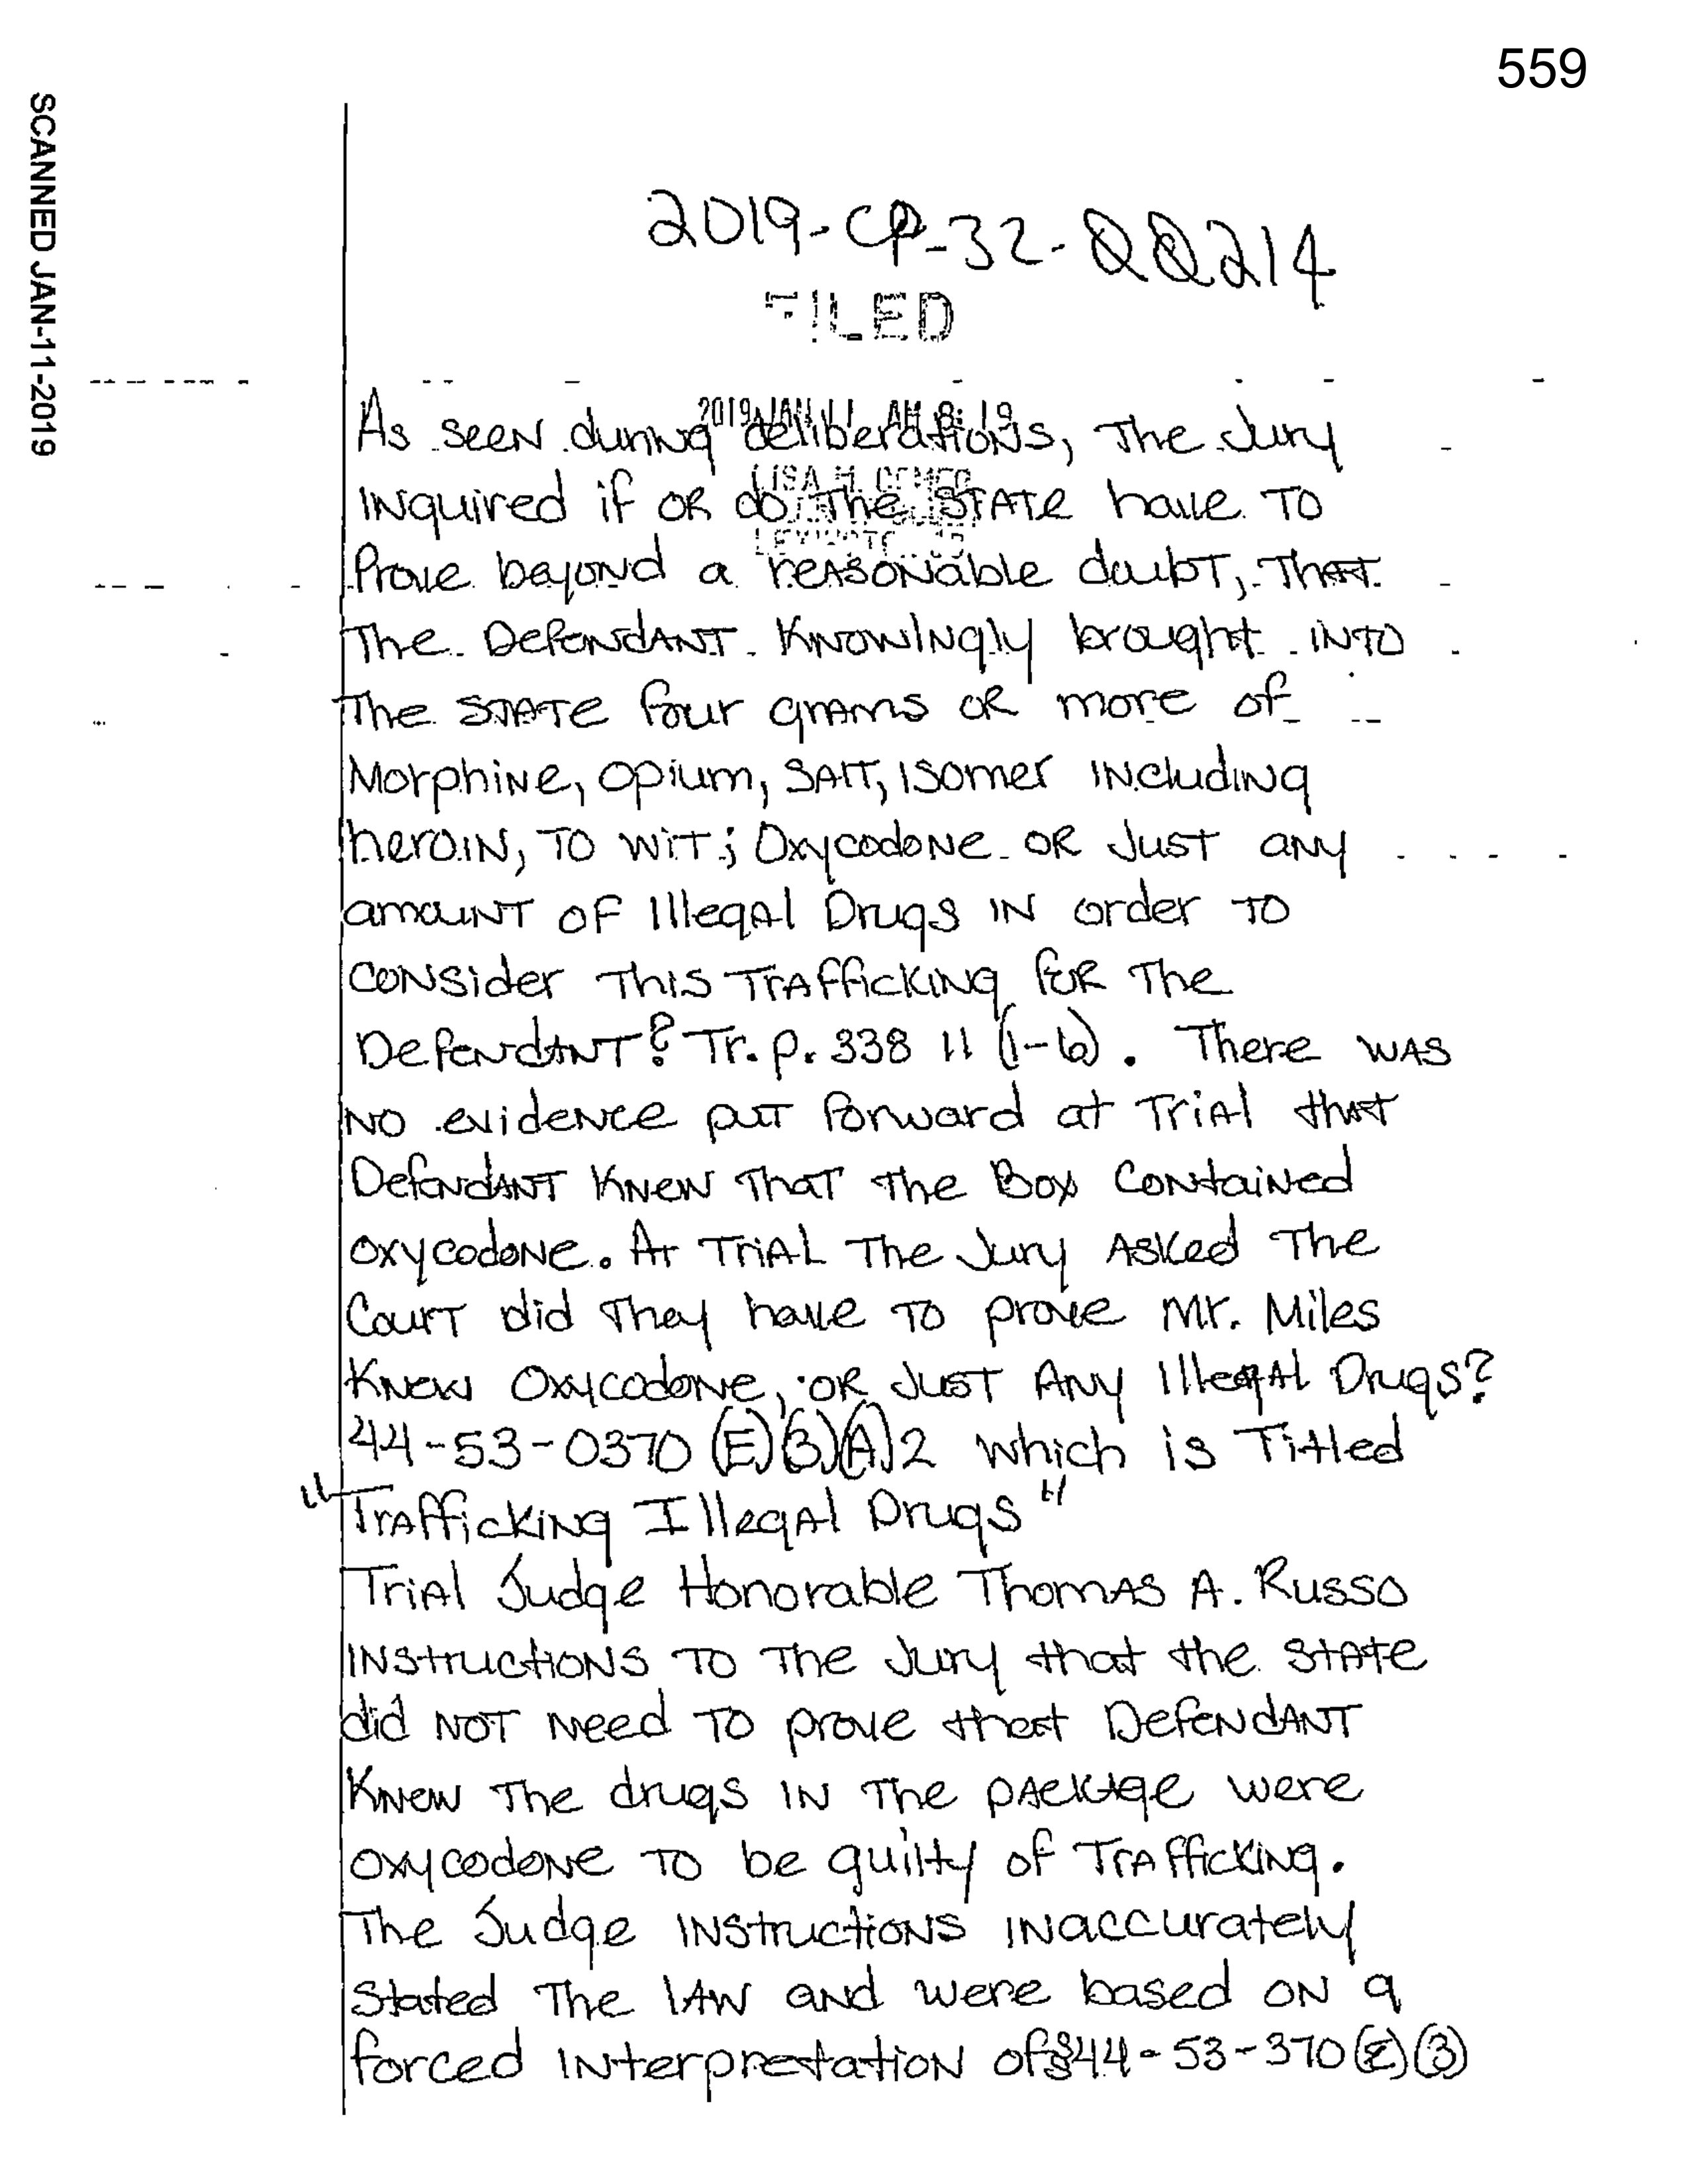 559
SCANNED JAN-11-2019
2019-CP-32-00214
FILED
2019 JAN 11 AM 8:19
As seen during deliberations, The Jury
LISA M. COMER
Inquired if or do The State have To
Prove beyond a reasonable doubt, That
The Defendant Knowingly brought into
The State four grams or more of
Morphine, Opium, Salt, Isomer including
heroin, To wit; Oxycodone or Just any
amount of Illegal Drugs in order To
consider This Trafficking for The
Defendant? Tr. p. 338 ll (1-6). There was
no evidence put forward at Trial that
Defendant Knew That the Box Contained
oxycodone. At Trial The Jury Asked The
Court did They have To prove Mr. Miles
Knew Oxycodone, or Just Any Illegal Drugs?
44-53-0370 (E)(3)(A)2 which is Titled
"Trafficking Illegal Drugs"
Trial Judge Honorable Thomas A. Russo
instructions To The Jury that the State
did not need To prove that Defendant
Knew The drugs in The package were
oxycodone To be guilty of Trafficking.
The Judge instructions inaccurately
Stated The law and were based on a
forced interprestation of §44-53-370(E)(3)